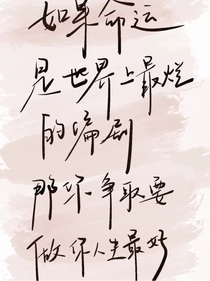 如果命运
是世界上最烂
的编剧
那你争取要
做你人生最好